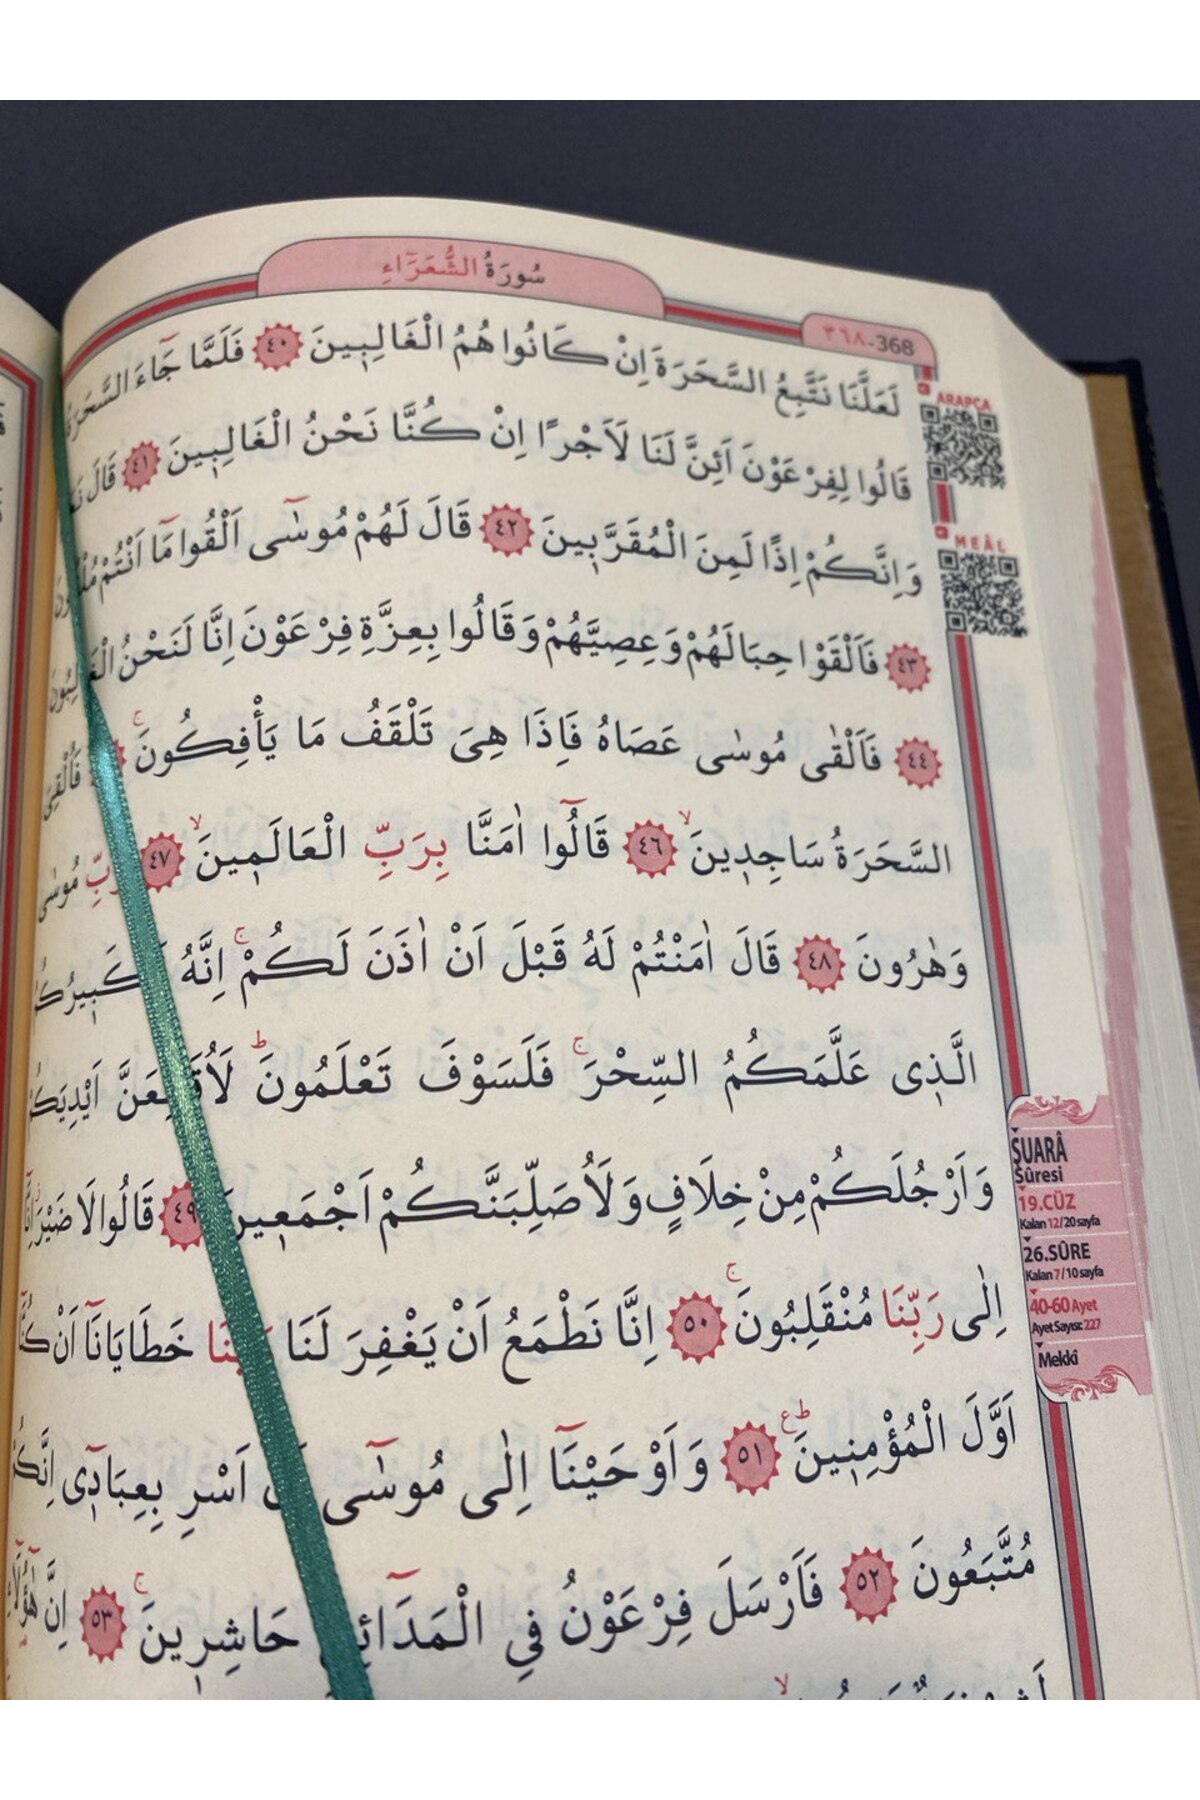 سُورَةُ الشُّعَرَٓاءِ
٣٦٨-368
لَعَلَّنَا نَتَّبِعُ السَّحَرَةَ اِنْ كَانُوا هُمُ الْغَالِبٖينَ ٤٠ فَلَمَّا جَٓاءَ السَّحَرَةُ
قَالُوا لِفِرْعَوْنَ اَئِنَّ لَنَا لَاَجْرًا اِنْ كُنَّا نَحْنُ الْغَالِبٖينَ ٤١ قَالَ
وَاِنَّكُمْ اِذًا لَمِنَ الْمُقَرَّبٖينَ ٤٢ قَالَ لَهُمْ مُوسٰٓى اَلْقُوا مَٓا اَنْتُمْ مُلْقُونَ
٤٣ فَاَلْقَوْا حِبَالَهُمْ وَعِصِيَّهُمْ وَقَالُوا بِعِزَّةِ فِرْعَوْنَ اِنَّا لَنَحْنُ الْغَالِبُونَ
٤٤ فَاَلْقٰى مُوسٰى عَصَاهُ فَاِذَا هِىَ تَلْقَفُ مَا يَأْفِكُونَۚ فَاُلْقِىَ
السَّحَرَةُ سَاجِدٖينَۙ ٤٦ قَالُٓوا اٰمَنَّا بِرَبِّ الْعَالَمٖينَۙ ٤٧ رَبِّ مُوسٰى
وَهٰرُونَ ٤٨ قَالَ اٰمَنْتُمْ لَهُ قَبْلَ اَنْ اٰذَنَ لَكُمْۚ اِنَّهُ لَكَبٖيرُكُمُ
الَّذٖى عَلَّمَكُمُ السِّحْرَۚ فَلَسَوْفَ تَعْلَمُونَؕ لَاُقَطِّعَنَّ اَيْدِيَكُمْ
وَاَرْجُلَكُمْ مِنْ خِلَافٍ وَلَاُصَلِّبَنَّكُمْ اَجْمَعٖينَ ٤٩ قَالُوا لَا ضَيْرَ اِنَّٓا
اِلٰى رَبِّنَا مُنْقَلِبُونَۚ ٥٠ اِنَّا نَطْمَعُ اَنْ يَغْفِرَ لَنَا رَبُّنَا خَطَايَانَٓا اَنْ كُنَّٓا
اَوَّلَ الْمُؤْمِنٖينَؕ ع ٥١ وَاَوْحَيْنَٓا اِلٰى مُوسٰٓى اَنْ اَسْرِ بِعِبَادٖٓى اِنَّكُمْ
مُتَّبَعُونَ ٥٢ فَاَرْسَلَ فِرْعَوْنُ فِي الْمَدَٓائِنِ حَاشِرٖينَۚ ٥٣ اِنَّ هٰٓؤُلَٓاءِ
ARAPÇA
MEÂL
ŞUARÂ
Sûresi
19.CÜZ
Kalan 12/20 sayfa
26.SÛRE
Kalan 7/10 sayfa
40-60 Ayet
Ayet Sayısı: 227
Mekkî